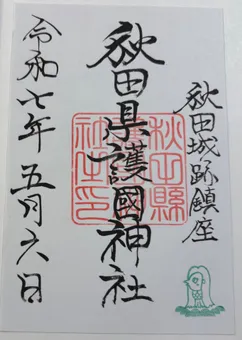 秋田城跡鎮座
秋田県護國神社
令和七年五月六日
秋田縣護國神社印